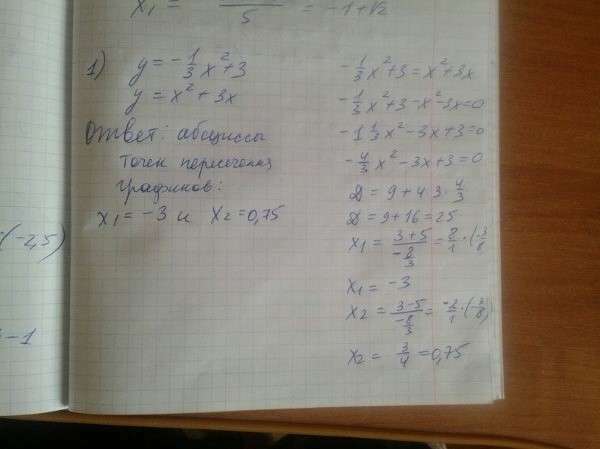 x₁ = ――― = -1+√2
5
1) y = -1/3 x² + 3
y = x² + 3x
Ответ: абсциссы
точек пересечения
графиков:
x₁ = -3 и x₂ = 0,75
-1/3 x² + 3 = x² + 3x
-1/3 x² + 3 - x² - 3x = 0
-1 1/3 x² - 3x + 3 = 0
-4/3 x² - 3x + 3 = 0
D = 9 + 4·3·4/3
D = 9 + 16 = 25
x₁ = (3+5)/(-8/3) = 8/1 · (-3/8)
x₁ = -3
x₂ = (3-5)/(-8/3) = -2/1 · (-3/8)
x₂ = 3/4 = 0,75
(-2,5)
-1